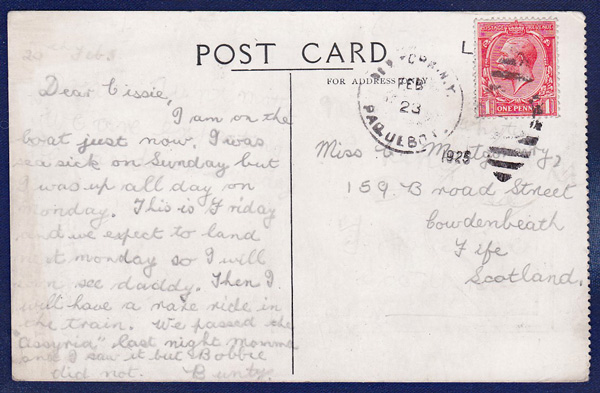 20 Feb 3
POST CARD
L
FOR ADDRESS ONLY
NEW YORK, N.Y.
FEB
23
PAQUEBOT
1925
POSTAGE REVENUE
ONE PENNY
Dear Cissie,
I am on the
boat just now. I was
sea sick on Sunday but
I was up all day on
monday. This is Friday
and we expect to land
next monday so I will
soon see daddy. Then I
will have a rare ride in
the train. We passed the
"Assyria" last night momma
and I saw it but Bobbie
did not. Bunty.
Miss C. Montgomery,
159 Broad Street
Cowdenbeath
Fife
Scotland.